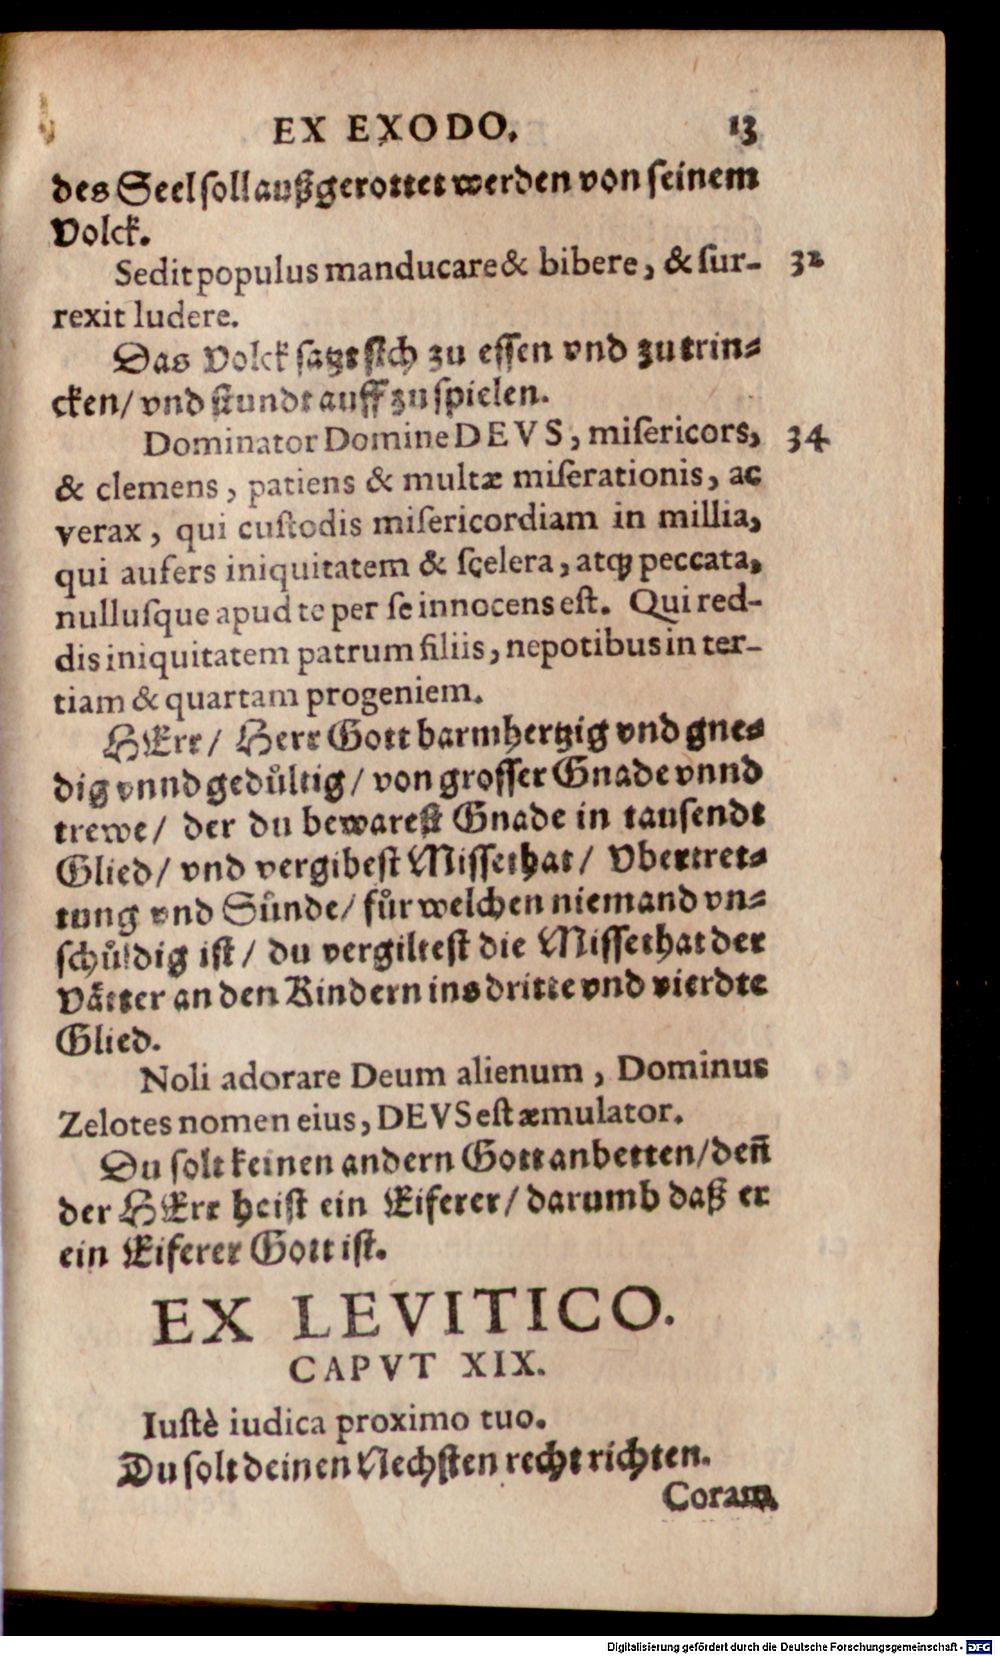 EX EXODO. 13
des Seel soll außgerottet werden von seinem
Volck.
Sedit populus manducare & bibere, & ſur- 32
rexit ludere.
Das Volck satzt sich zu essen vnd zu trin-
cken/ vnd stundt auff zu spielen.
Dominator Domine DEVS, miſericors, 34
& clemens, patiens & multæ miſerationis, ac
verax, qui cuſtodis miſericordiam in millia,
qui aufers iniquitatem & ſcelera, atq; peccata,
nulluſque apud te per ſe innocens eſt. Qui red-
dis iniquitatem patrum filiis, nepotibus in ter-
tiam & quartam progeniem.
HErr/ Herr Gott barmhertzig vnd gne-
dig vnnd gedůltig/ von grosser Gnade vnnd
trewe/ der du bewarest Gnade in tausendt
Glied/ vnd vergibest Missethat/ Vbertret-
tung vnd Sůnde/ fůr welchen niemand vn-
schůldig ist/ du vergiltest die Missethat der
Våtter an den Kindern ins dritte vnd vierdte
Glied.
Noli adorare Deum alienum, Dominus
Zelotes nomen eius, DEVS eſt æmulator.
Du solt keinen andern Gott anbetten/ deñ
der HErr heist ein Eiferer/ darumb daß er
ein Eiferer Gott ist.
EX LEVITICO.
CAPVT XIX.
Iuſtè iudica proximo tuo.
Du solt deinen Nechsten recht richten.
Coram
Digitalisierung gefördert durch die Deutsche Forschungsgemeinschaft - DFG